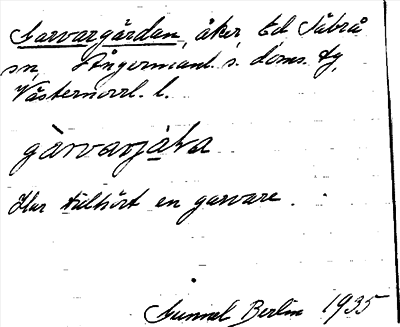 Garvargärdan, åker, Ed Säbrå
sn, Ångermanl. s. doms. fg,
Västernorrl. l.
gàrvarjàḷa
Har tillhört en garvare.
Gunnel Berlin 1935